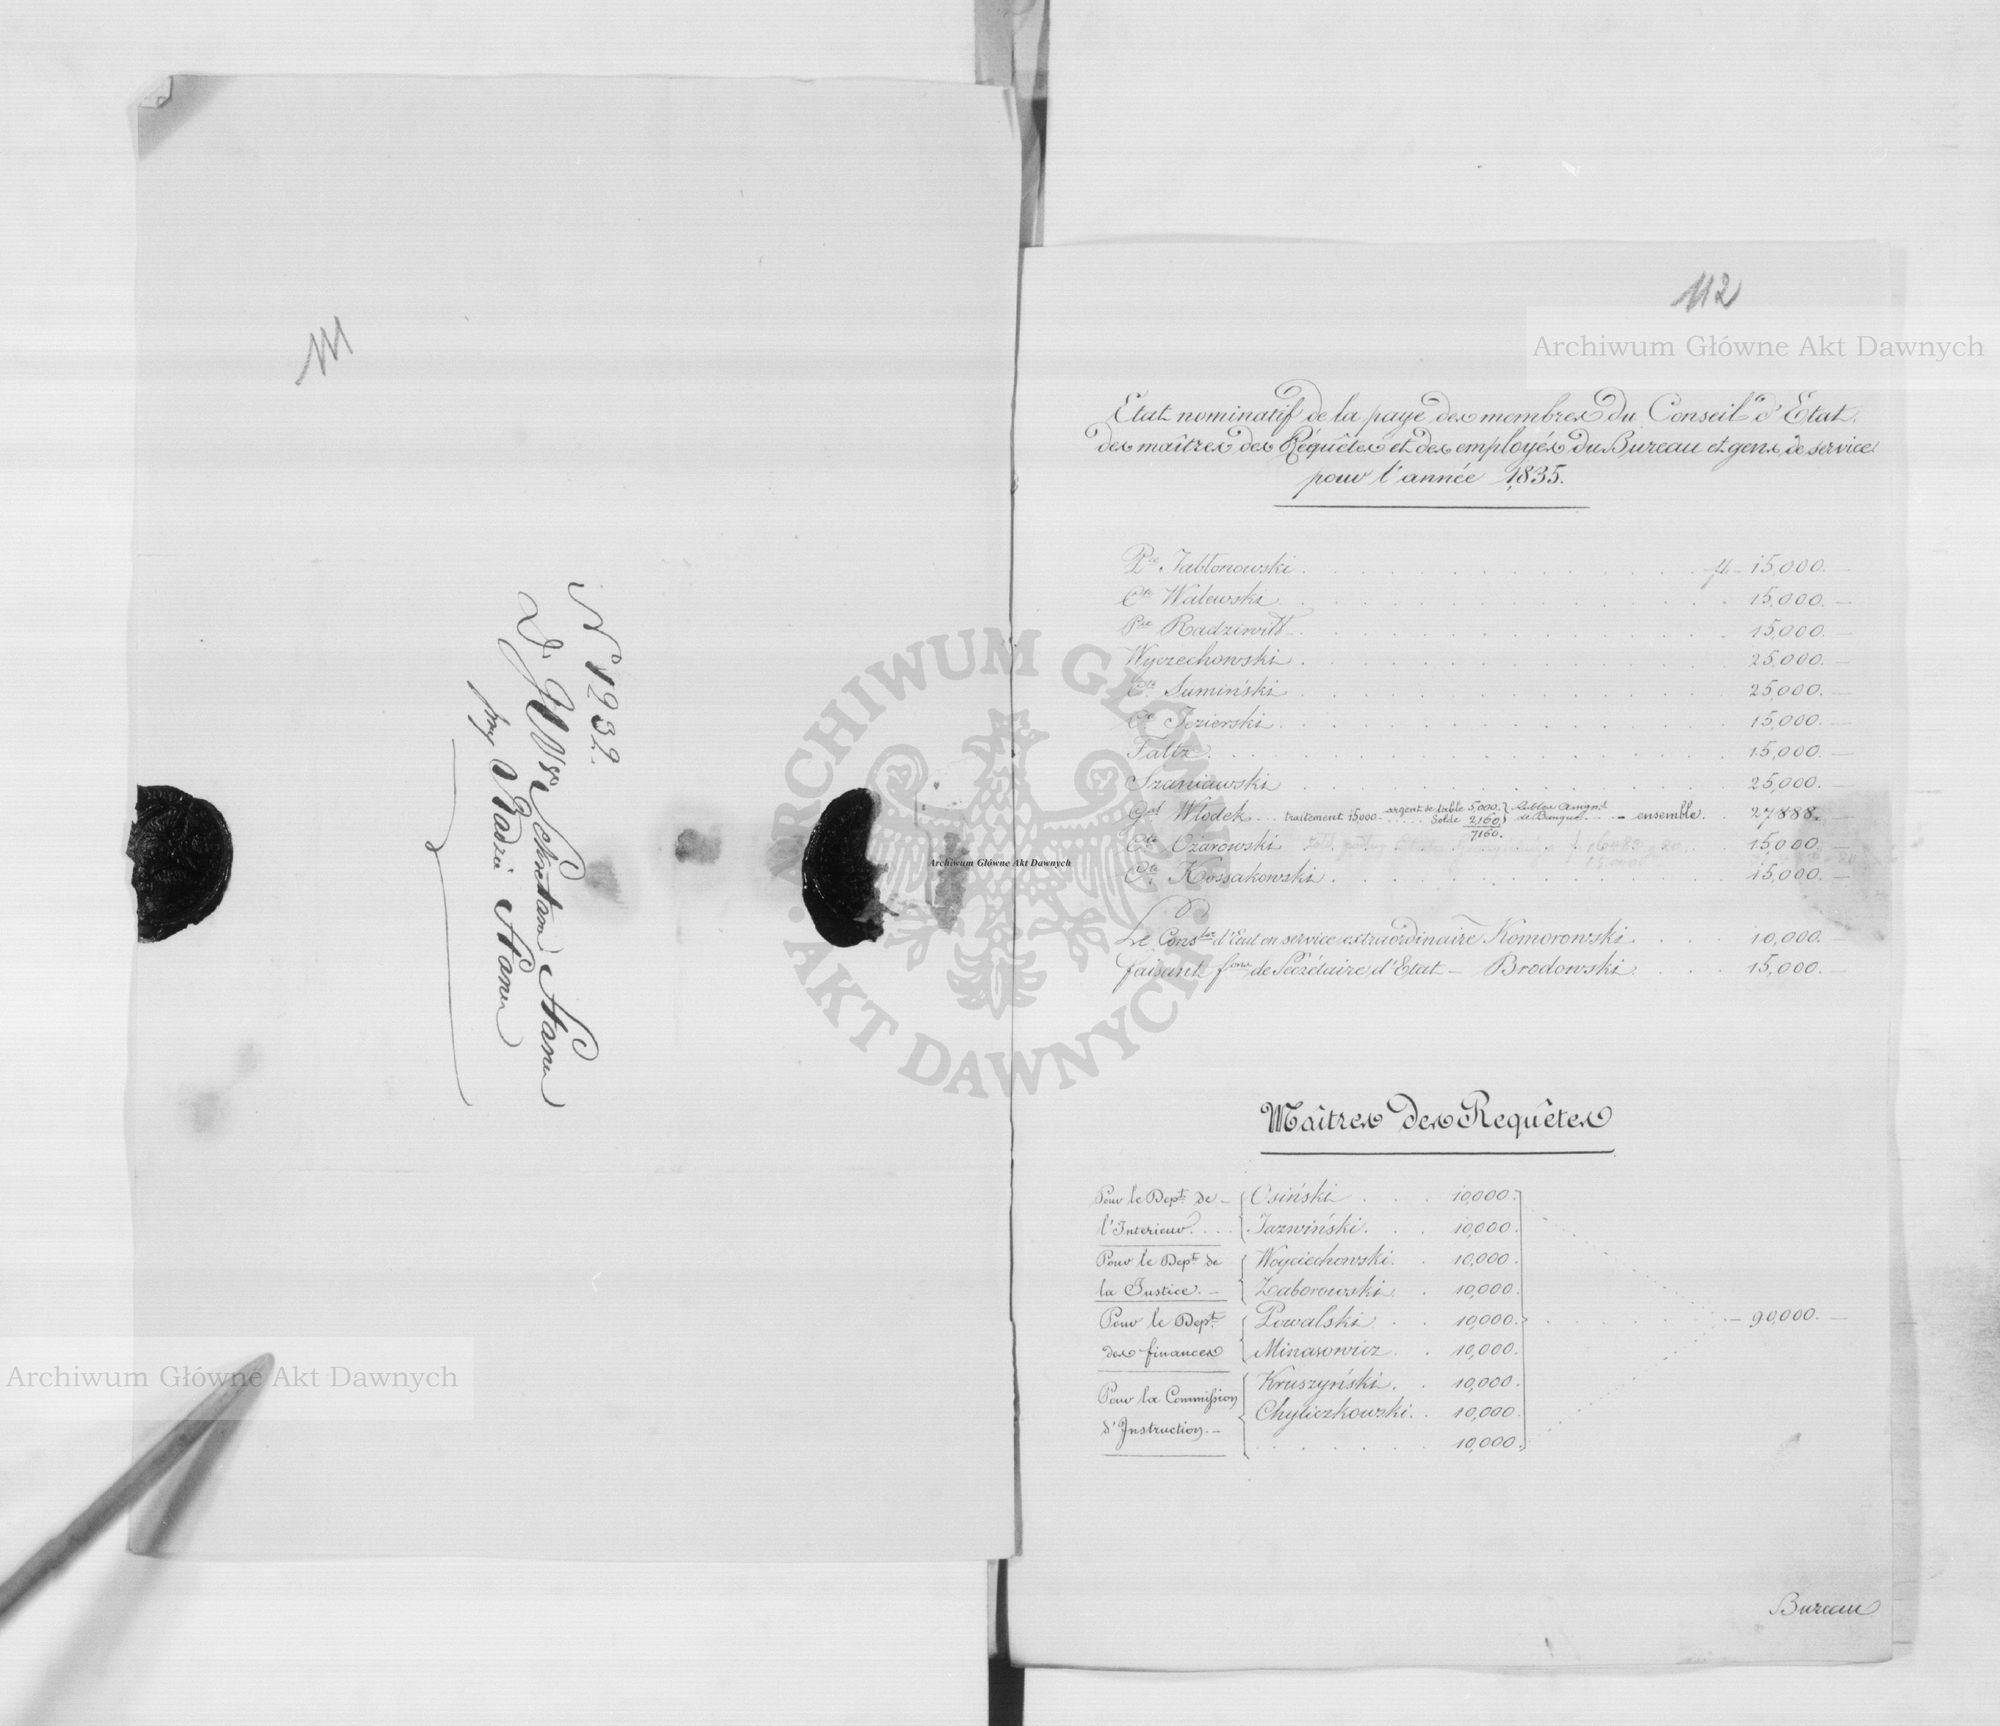 111
N 1932.
D. JW Sekretarza Stanu
przy Radzie Stanu
112
Etat nominatif de la paye des membres du Conseil d'Etat,
des maîtres des Requêtes et des employés du Bureau et gens de service
pour l'année 1835.
Pce Jabłonowski . . . fl. 15,000. —
Cte Walewski . . . 15,000. —
Pce Radziwiłł . . . 15,000. —
Wyczechowski . . . 25,000. —
Cte Sumiński . . . 25,000. —
Cte Jezierski . . . 15,000. —
Faltz . . . 15,000. —
Szaniawski . . . 25,000. —
Gal Włodek . . traitement 15000. argent de table 5000. Solde 2160. 7160. de Banque — ensemble . . 27,888. —
Cte Ożarowski . . . 15,000. —
Cte Kossakowski . . . 15,000. —
Le Conser d'Etat en service extraordinaire Komorowski . . . 10,000. —
faisant fons de Secrétaire d'Etat — Brodowski . . . 15,000. —
Maîtres des Requêtes
Pour le Dept de — Osiński . . . 10,000.
l'Interieur . . . Jazwiński . . . 10,000.
Pour le Dept de Woyciechowski . . 10,000.
la Justice. — Zaborowski . . 10,000.
Pour le Dept Powalski . . . 10,000. . . . — 90,000. —
des finances Minasowicz . . 10,000.
Kruszyński . . 10,000.
Pour la Commission Chyliczkowski . . 10,000.
d'Instruction. — . . . 10,000.
Bureau
Archiwum Główne Akt Dawnych
Archiwum Główne Akt Dawnych
Archiwum Główne Akt Dawnych
ARCHIWUM GŁÓWNE
AKT DAWNYCH